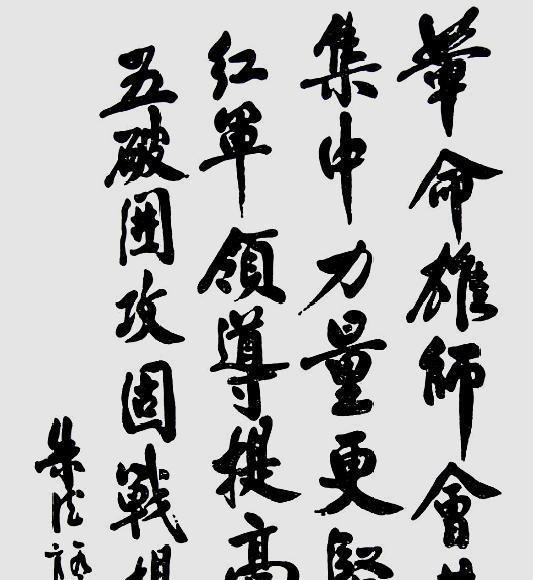 革命雄師會
集中力量更堅
紅軍領導提高
五破囲攻固戰場
朱德